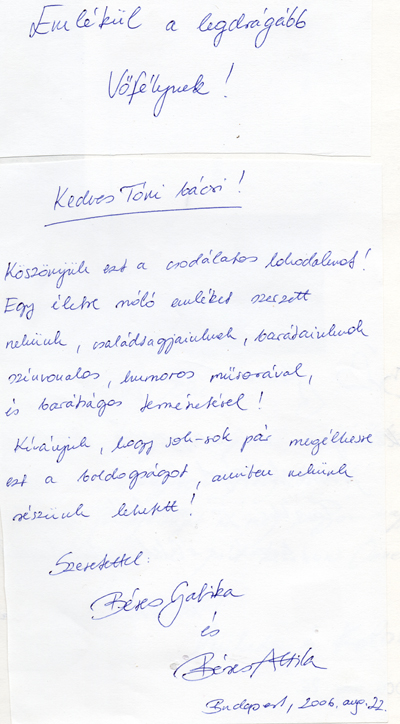 Emlékül a legdrágább
Vőfélynek!
Kedves Tóni bácsi!
Köszönjük ezt a csodálatos lakodalmat!
Egy életre szóló emléket szerzett
nekünk, családtagjainknak, barátainknak
színvonalas, humoros műsorával,
és barátságos természetével!
Kívánjuk, hogy sok-sok pár megélhesse
ezt a boldogságot, amiben nekünk
részünk lehetett!
Szeretettel:
Béres Gabika
és
Béres Attila
Budapest, 2006. aug. 22.